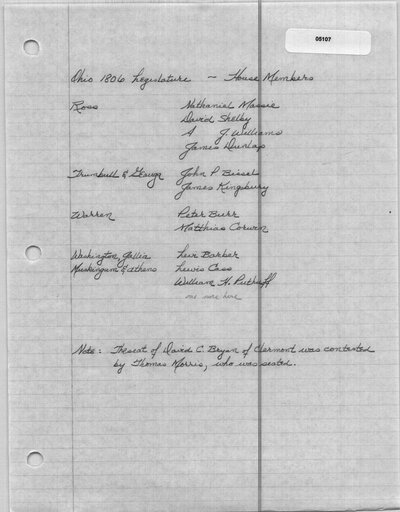 05107
Ohio 1806 Legislature — House Members
Ross Nathanial Massie
David Shelby
A J. Williams
James Dunlap
Trumbull & Geauga John P Bissel
James Kingsbury
Warren Peter Burr
Matthias Corwin
Washington, Gallia Levi Barber
Muskingum & Athens Lewis Cass
William H. Puthuff
one more here
Note: The seat of David C. Bryan of Clermont was contested
by Thomas Morris, who was seated.